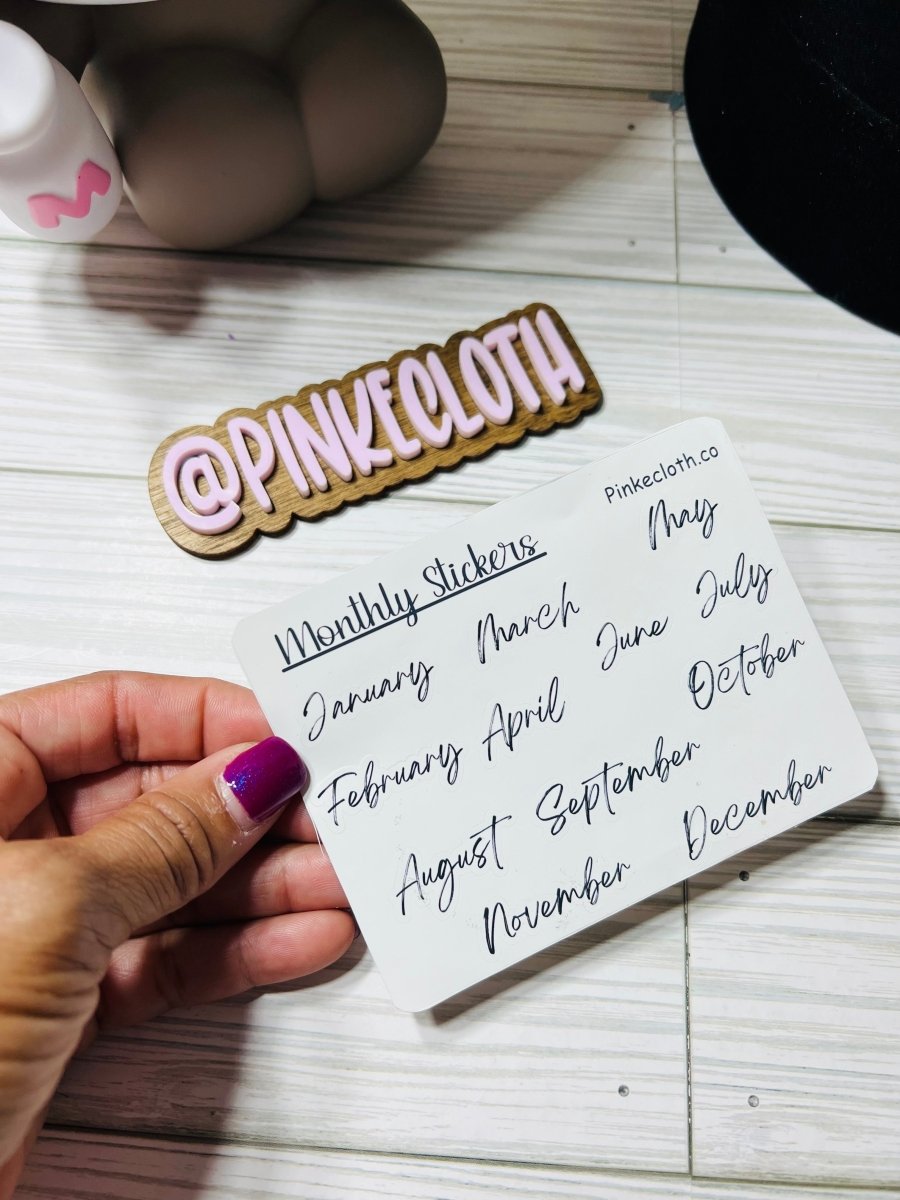 @PINKECLOTH
Pinkecloth.co
Monthly Stickers
January
March
May
June
July
February
April
October
August
September
November
December